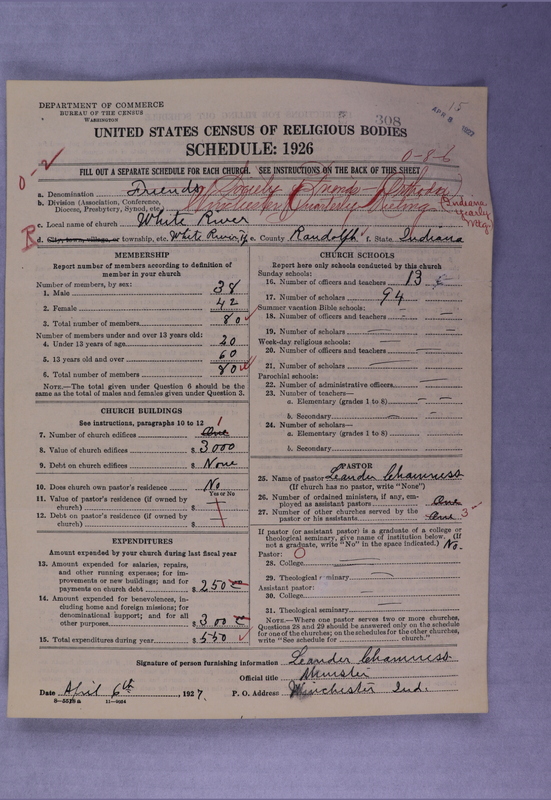 DEPARTMENT OF COMMERCE
BUREAU OF THE CENSUS
WASHINGTON
308
15
APR 8 1927
UNITED STATES CENSUS OF RELIGIOUS BODIES
SCHEDULE: 1926
0-2
0-8-6
FILL OUT A SEPARATE SCHEDULE FOR EACH CHURCH. SEE INSTRUCTIONS ON THE BACK OF THIS SHEET
a. Denomination Friends Society of Friends - Orthodox
b. Division (Association, Conference, Diocese, Presbytery, Synod, etc.) Winchester Quarterly Meeting Indiana Yearly Mtg.
c. Local name of church White River
R d. City, town, village, or township, etc. White River Tp. e. County Randolph f. State Indiana
MEMBERSHIP
Report number of members according to definition of member in your church
Number of members, by sex:
1. Male 38
2. Female 42
3. Total number of members 80
Number of members under and over 13 years old:
4. Under 13 years of age 20
5. 13 years old and over 60
6. Total number of members 80
NOTE.—The total given under Question 6 should be the same as the total of males and females given under Question 3.
CHURCH BUILDINGS
See instructions, paragraphs 10 to 12
7. Number of church edifices One 1
8. Value of church edifices $ 3000
9. Debt on church edifices $ None
10. Does church own pastor's residence? No
Yes or No
11. Value of pastor's residence (if owned by church) $
12. Debt on pastor's residence (if owned by church) $
EXPENDITURES
Amount expended by your church during last fiscal year
13. Amount expended for salaries, repairs, and other running expenses; for improvements or new buildings; and for payments on church debt $ 250
14. Amount expended for benevolences, including home and foreign missions; for denominational support; and for all other purposes $ 300
15. Total expenditures during year $ 550
CHURCH SCHOOLS
Report here only schools conducted by this church
Sunday schools:
16. Number of officers and teachers 13
17. Number of scholars 94
Summer vacation Bible schools:
18. Number of officers and teachers
19. Number of scholars
Week-day religious schools:
20. Number of officers and teachers
21. Number of scholars
Parochial schools:
22. Number of administrative officers
23. Number of teachers—
a. Elementary (grades 1 to 8)
b. Secondary
24. Number of scholars—
a. Elementary (grades 1 to 8)
b. Secondary
PASTOR
25. Name of pastor Leander Chamness
(If church has no pastor, write "None")
26. Number of ordained ministers, if any, employed as assistant pastors One
27. Number of other churches served by the pastor or his assistants One 3
If pastor (or assistant pastor) is a graduate of a college or theological seminary, give name of institution below. (If not a graduate, write "No" in the space indicated.) No.
Pastor: 0
28. College
29. Theological seminary
Assistant pastor:
30. College
31. Theological seminary
NOTE.—Where one pastor serves two or more churches, Questions 28 and 29 should be answered only on the schedule for one of the churches; on the schedules for the other churches, write "See schedule for church."
Signature of person furnishing information Leander Chamness
Official title Minister
Date April 6th, 1927. P. O. Address Winchester Ind.